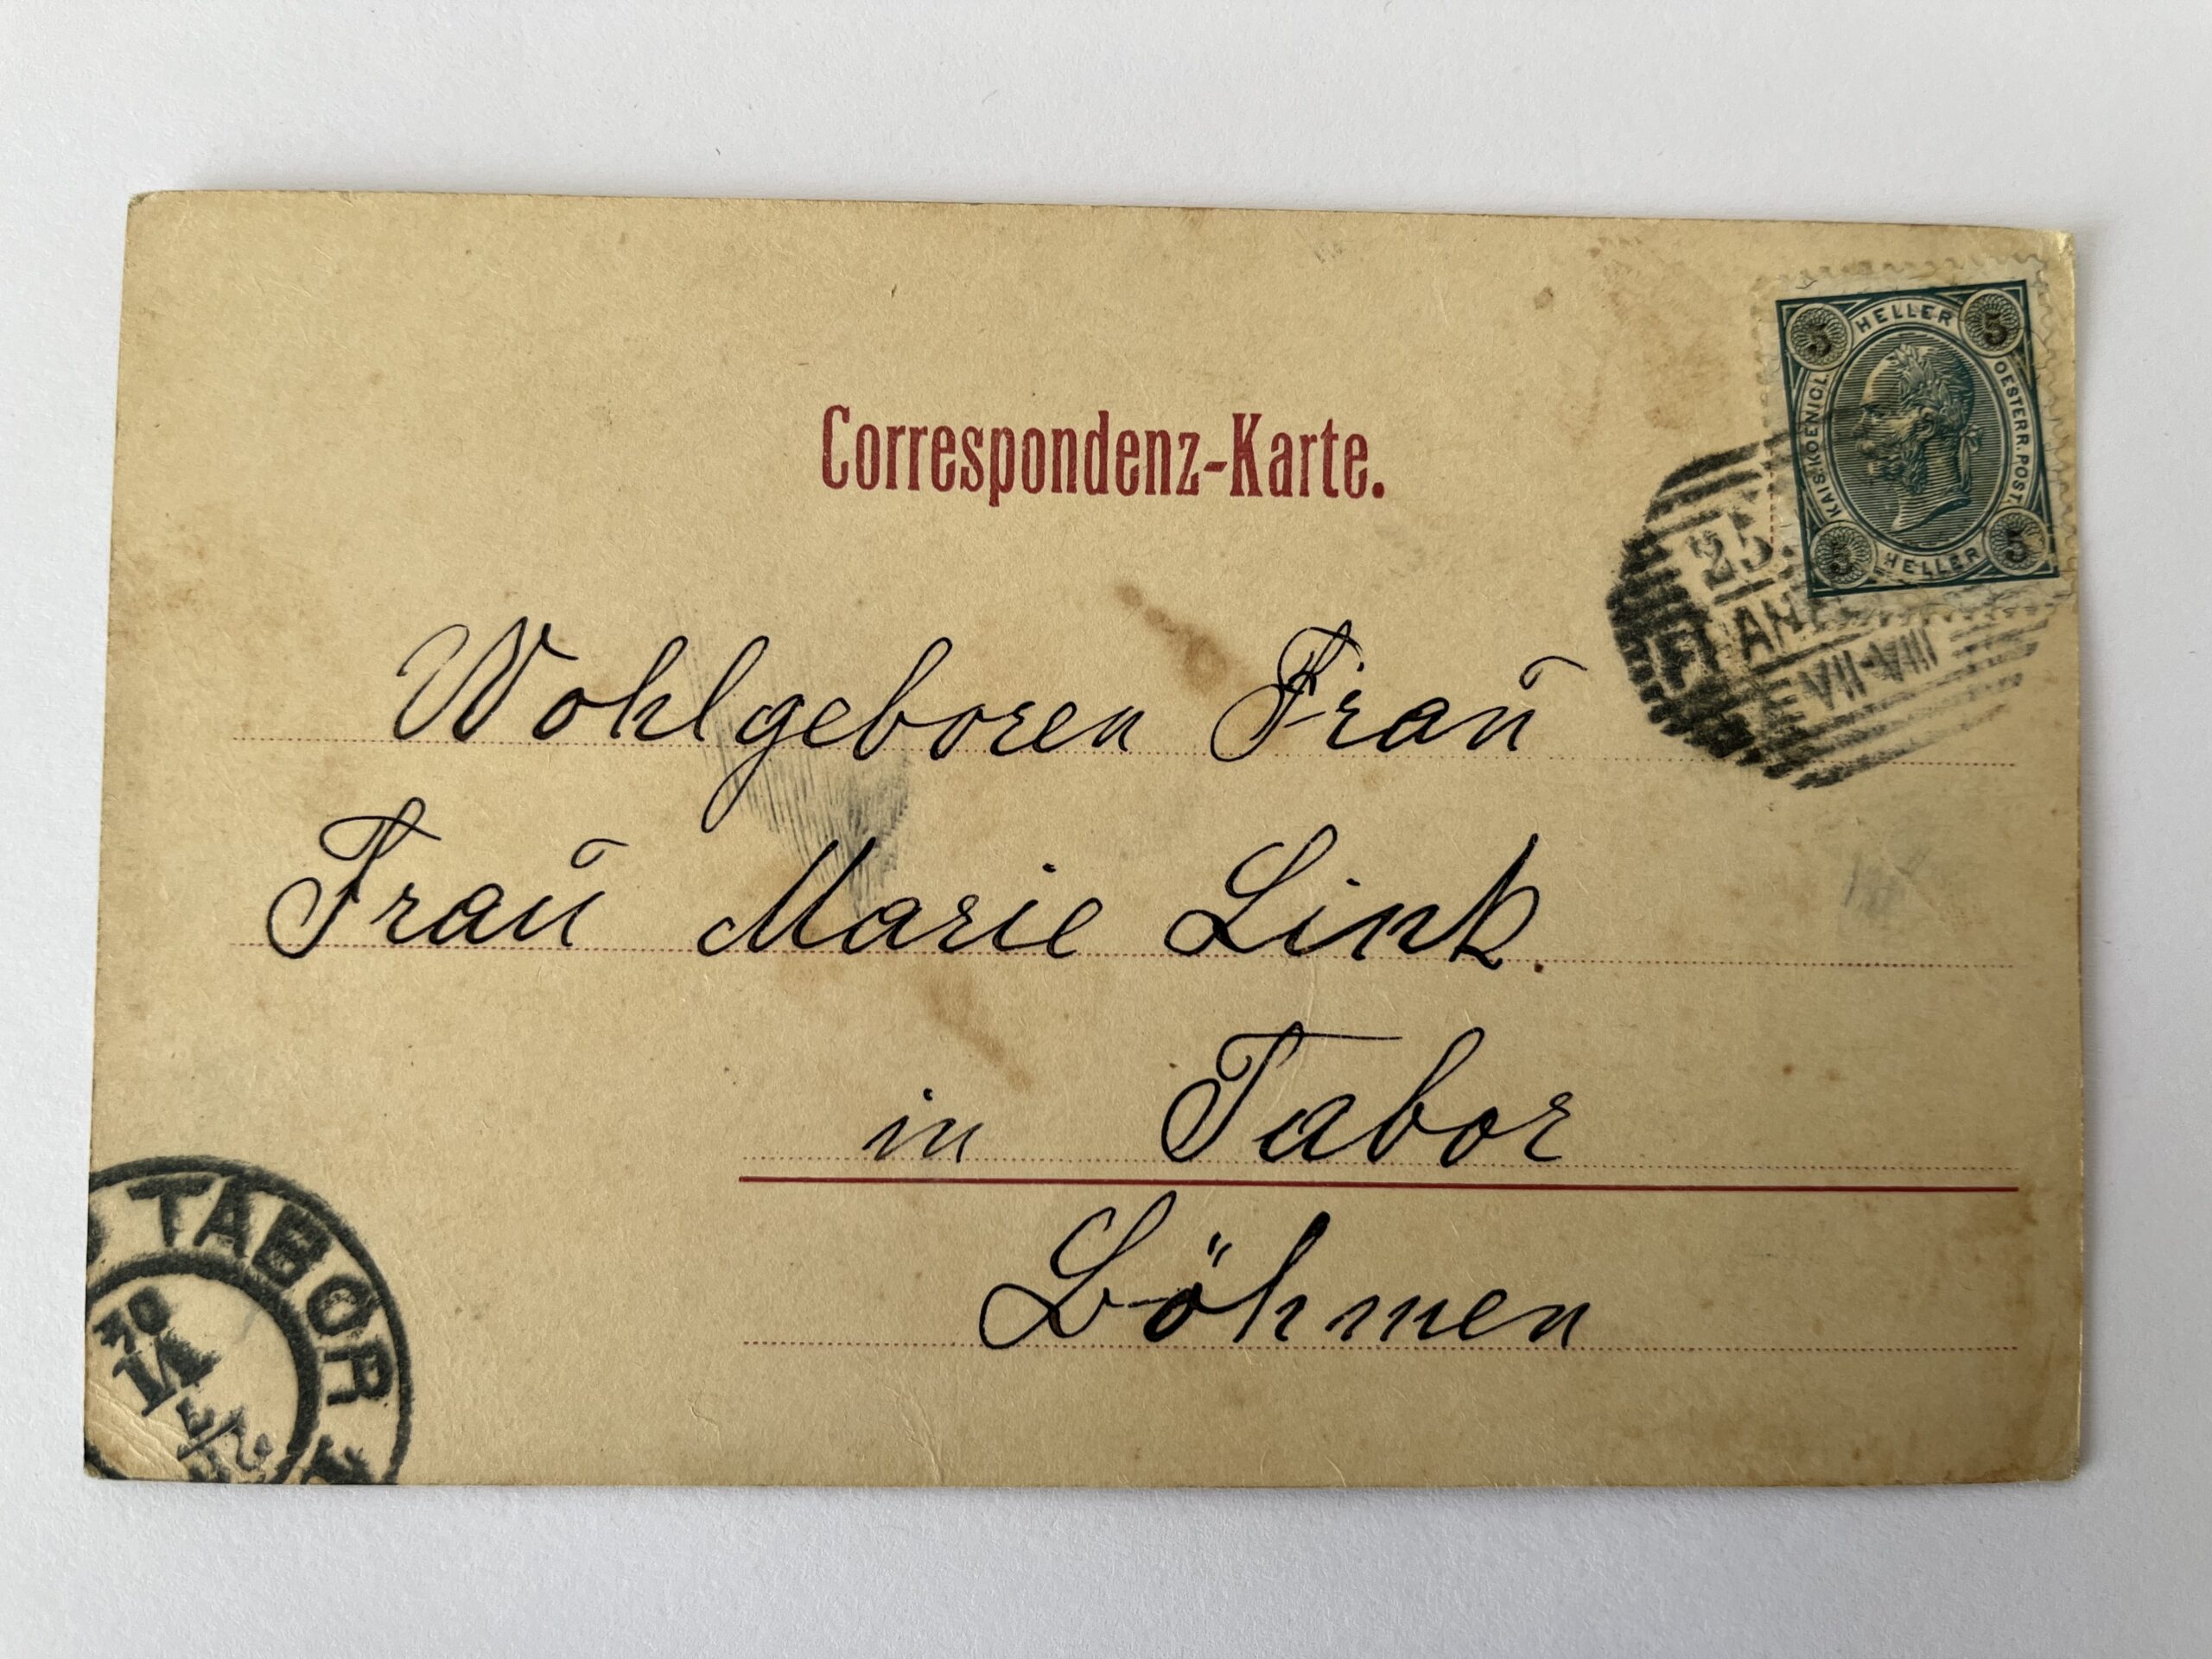 Correspondenz-Karte.
5 HELLER 5
KAIS.KOENIGL. OESTERR.POST.
5 HELLER 5
25.
VII-VIII
Wohlgeboren Frau
Frau Marie Link.
in Tabor
Böhmen
TABOR
30